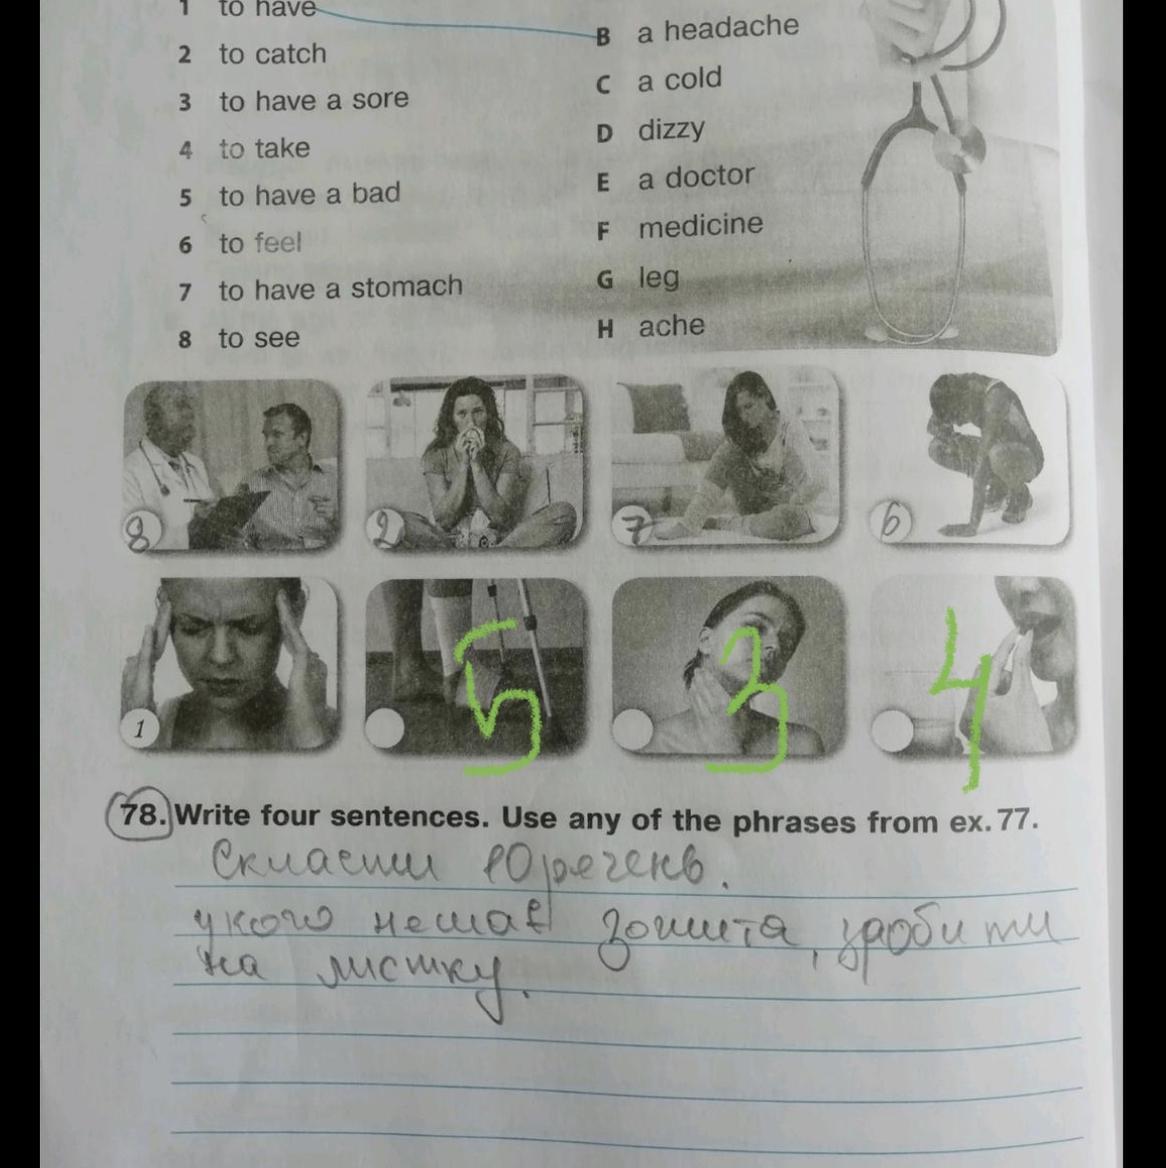 1 to have
B a headache
2 to catch
C a cold
3 to have a sore
D dizzy
4 to take
E a doctor
5 to have a bad
F medicine
6 to feel
G leg
7 to have a stomach
H ache
8 to see
8
2
7
6
1
5
3
4
78. Write four sentences. Use any of the phrases from ex. 77.
Скласти 10 речень.
у кого немає зошита, зробити
на листку.